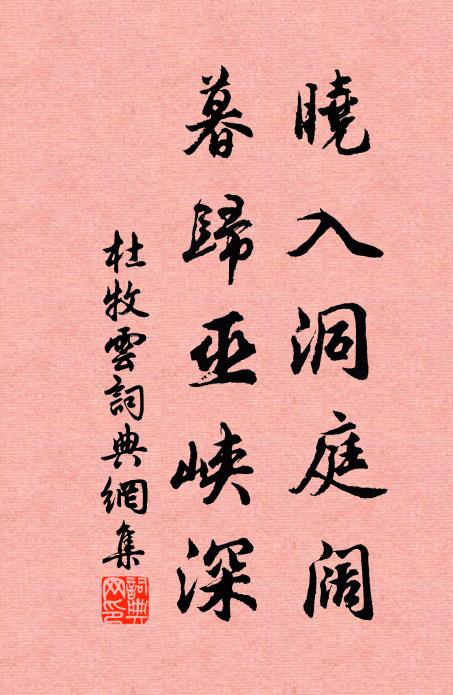 曉入洞庭闊
暮歸巫峽深
杜牧雲詞典網集
詞典網印